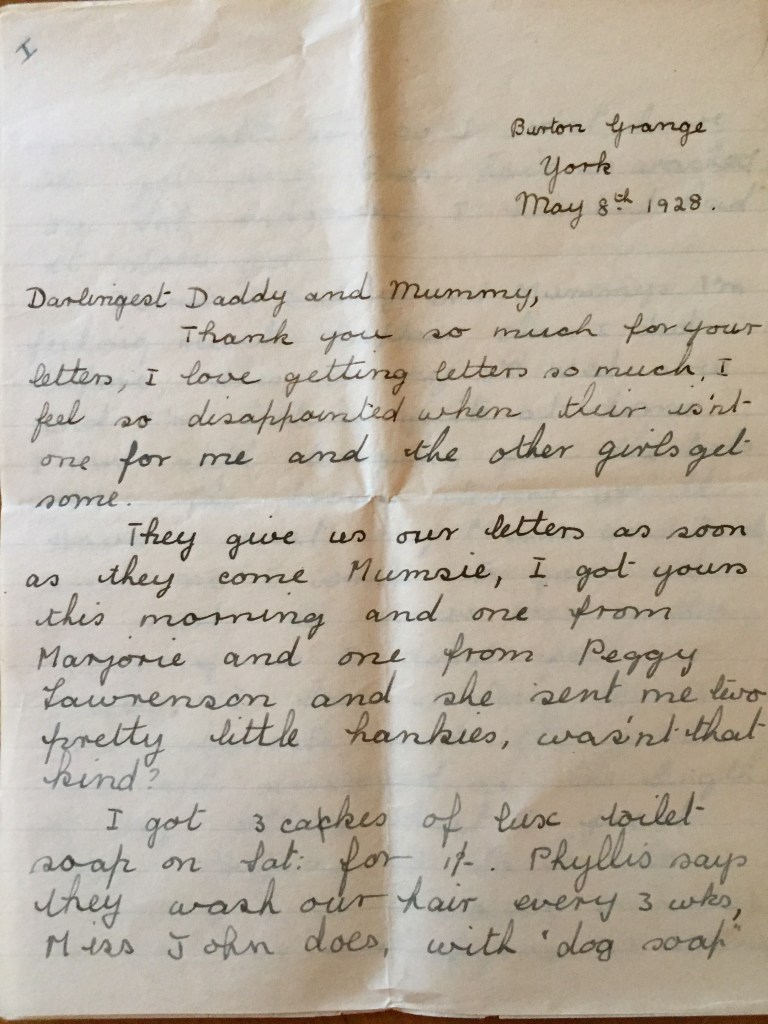 I
Burton Grange
York
May 8th 1928.
Darlingest Daddy and Mummy,
Thank you so much for your
letters, I love getting letters so much, I
feel so disappointed when their is'nt
one for me and the other girls get
some.
They give us our letters as soon
as they come Mumsie, I got yours
this morning and one from
Marjorie and one from Peggy
Lawrenson and she sent me two
pretty little hankies, was'nt that
kind?
I got 3 cakes of lux toilet
soap on Sat: for 1/-. Phyllis says
they wash our hair every 3 wks,
Miss John does, with "dog soap"